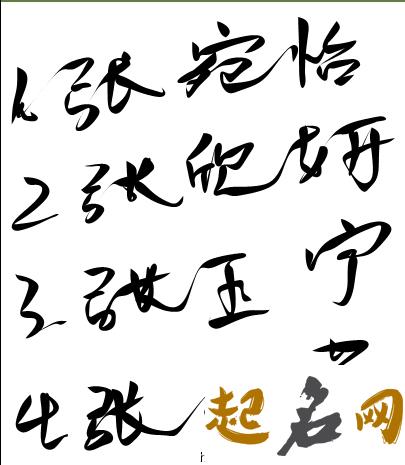 1、张宛怡
2张妍
3、张玉宁
4张起名网